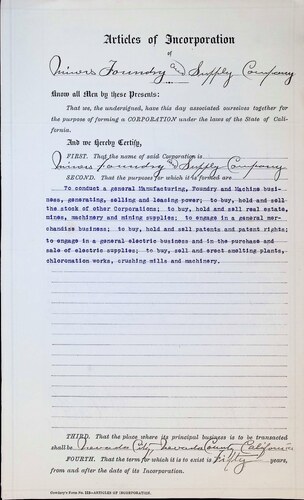 Articles of Incorporation
of
Miners Foundry and Supply Company
Know all Men by these Presents:
That we, the undersigned, have this day associated ourselves together for
the purpose of forming a CORPORATION under the laws of the State of Cali-
fornia.
And we Hereby Certify,
FIRST. That the name of said Corporation is
Miners Foundry and Supply Company
SECOND. That the purposes for which it is formed are
To conduct a general Manufacturing, Foundry and Machine busi-
ness, generating, selling and leasing power; to buy, hold and sell
the stock of other Corporations; to buy, hold and sell real estate,
mines, machinery and mining supplies; to engage in a general mer-
chandize business; to buy, hold and sell patents and patent rights;
to engage in a general electric business and in the purchase and
sale of electric supplies; to buy, sell and erect smelting plants,
chloronation works, crushing mills and machinery.
THIRD. That the place where its principal business is to be transacted
shall be Nevada City, Nevada County, California
FOURTH. That the term for which it is to exist is Fifty years,
from and after the date of its Incorporation.
Form No. ARTICLES OF INCORPORATION.